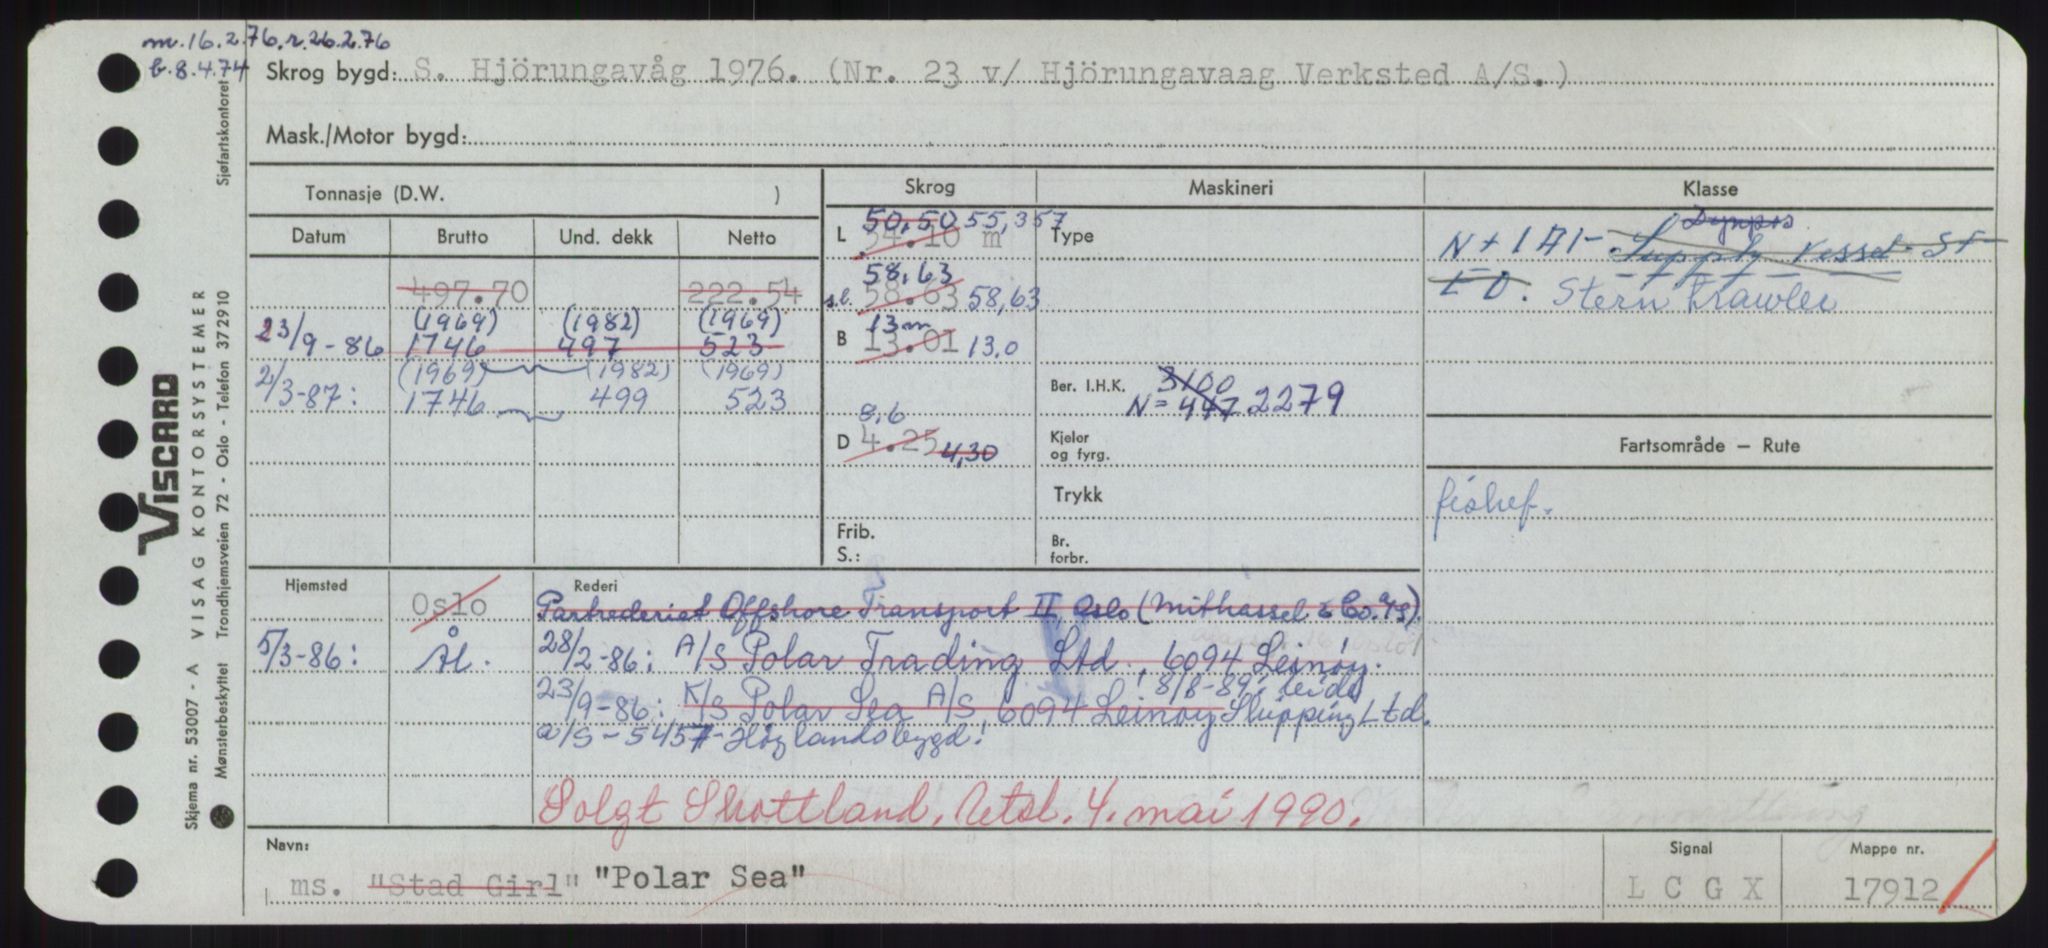 m. 16.2.76. r. 26.2.76
b. 8.4.74
Skrog bygd: S. Hjörungavåg 1976. (Nr. 23 v/ Hjörungavaag Verksted A/S.)
Mask./Motor bygd:
Tonnasje (D.W. )
Skrog
Maskineri
Klasse
Datum
Brutto
Und. dekk
Netto
497.70
222.54
(1969) (1982) (1969)
23/9-86 1746 497 523
(1969) (1982) (1969)
2/3-87: 1746 499 523
50,50 55,357
L 54.10 m
58,63
s.l. 58.63 58,63
13m
B 13.01 13.0
8,6
D 4.25 4,30
Frib.
S.:
Type
Ber. I.H.K. 3100
N= 447 2279
Kjeler
og fyrg.
Trykk
Br.
forbr.
Dynpos
N + 1A1- Supply Vessel- SF
E0. Stern Trawler
Fartsområde — Rute
fiskef.
Hjemsted
Rederi
Oslo
Partrederiet Offshore Transport II, Oslo (Mithassel & Co. A/S).
5/3-86: Ål. 28/2-86: A/S Polar Trading Ltd., 6094 Leinøy.
23/9-86: K/S Polar Sea A/S, 6094 Leinøy
8/8-89: Shipping Ltd.
a/S - 5457 - Høylandsbygd!
Solgt Skottland. Utsl. 4. mai 1990.
Navn:
ms. "Stad Girl" "Polar Sea"
Signal
L C G X
Mappe nr.
17912
VISCARD
Skjema nr. 53007 - A VISAG KONTORSYSTEMER
Mønsterbeskyttet Trondhjemsveien 72 - Oslo - Telefon 372910
Sjøfartskontoret